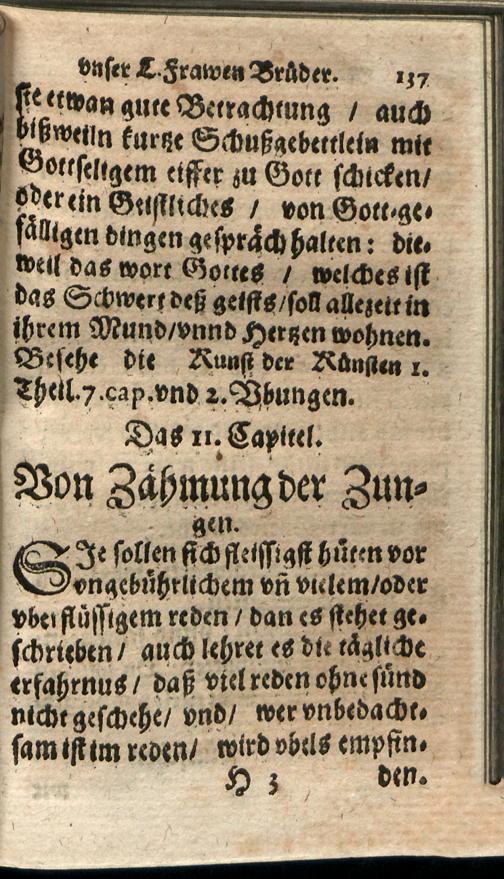 vnser L. Frawen Brüder. 137
ſie etwan gute Betrachtung / auch
bißweiln kurtze Schußgebettlein mit
Gottſeligem eiffer zu Gott ſchicken/
oder ein Geiſtliches / von Gott-ge-
fälligen dingen geſpräch halten: die-
weil das wort Gottes / welches iſt
das Schwert deß geiſts/ſoll allezeit in
ihrem Mund/vnnd Hertzen wohnen.
Beſehe die Kunſt der Künſten 1.
Theil.7.cap.vnd 2. Vbungen.
Das 11. Capitel.
Von Zähmung der Zun-
gen.
SJe ſollen ſich fleiſſigſt hüten vor
vngebührlichem vn̄ vielem/oder
vberflüſſigem reden / dan es ſtehet ge-
ſchrieben / auch lehret es die tägliche
erfahrnus / daß viel reden ohne ſünd
nicht geſchehe/ vnd/ wer vnbedacht-
ſam iſt im reden/ wird vbels empfin-
H 3 den.